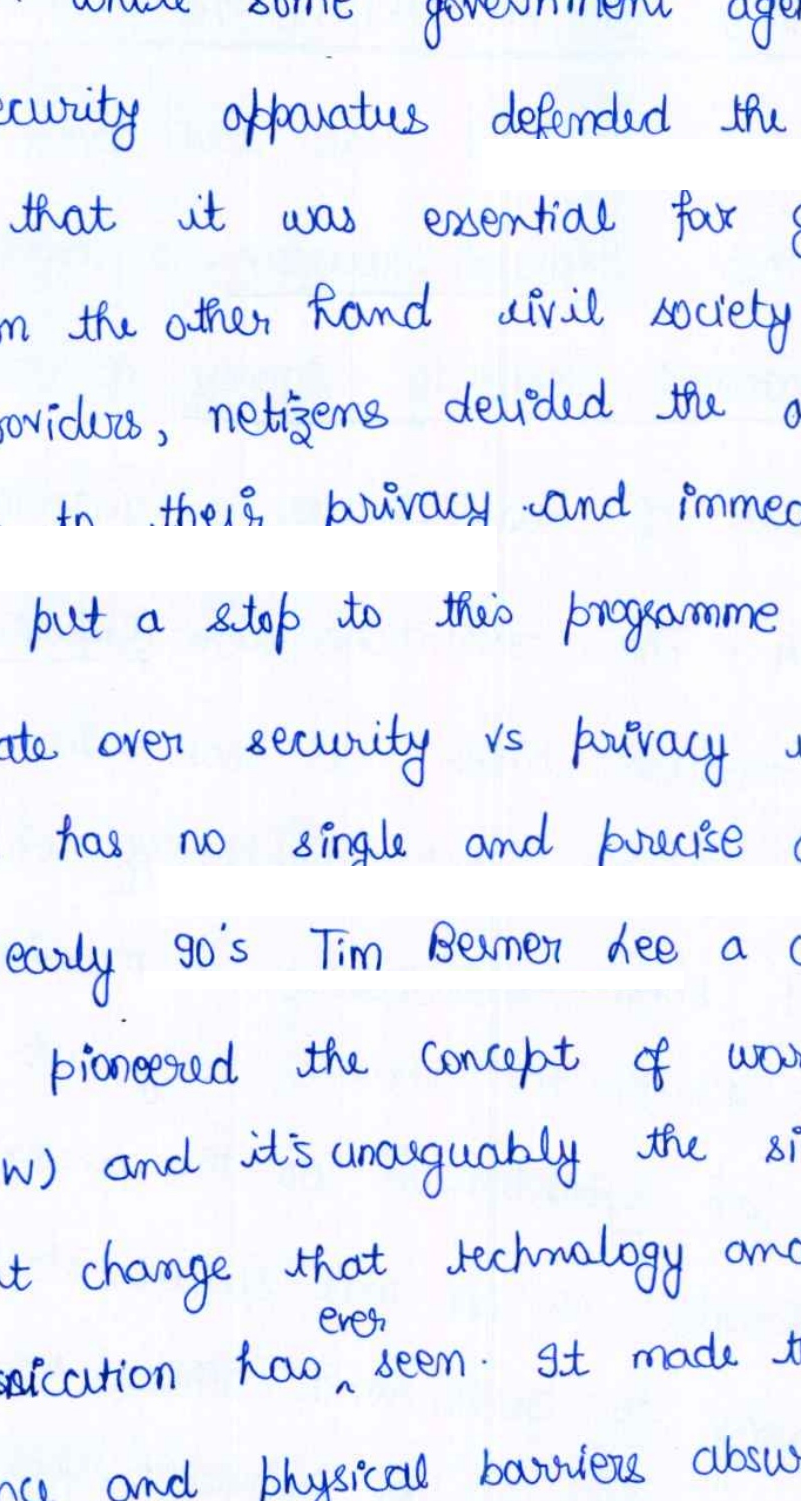 while some government age
ecurity apparatus defended the
that it was essential for g
n the other hand civil society
oviders, netizens derided the a
to their privacy and immed
put a stop to this programme
ate over security vs privacy
has no single and precise
early 90's Tim Berner Lee a c
pioneered the concept of wor
w) and it's unarguably the si
t change that technology and
nication has ever seen. It made t
nce and physical barriers absur